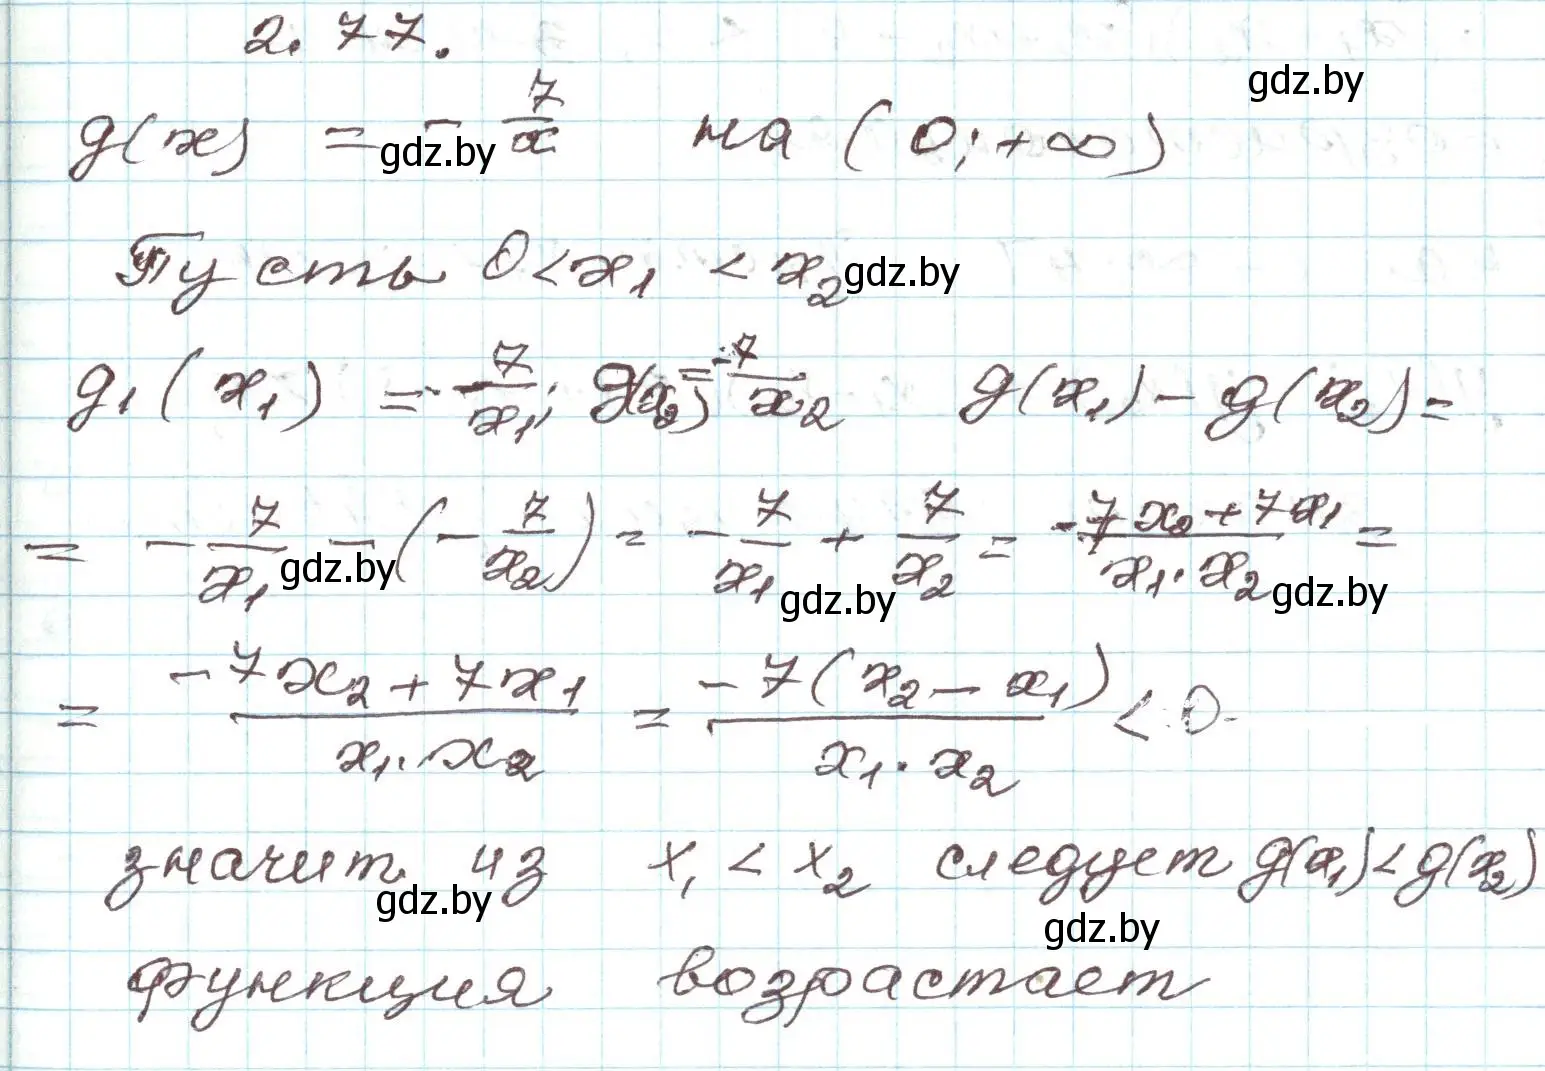 2.77.
gdz.by
g(x) = - 7/x на (0; +∞)
gdz.by
Пусть 0 < x₁ < x₂
gdz.by
g₁(x₁) = - 7/x₁; g(x₂) = -7/x₂ g(x₁) - g(x₂) =
= - 7/x₁ - (- 7/x₂) = - 7/x₁ + 7/x₂ = -7x₂ + 7x₁/x₁ · x₂ =
gdz.by gdz.by gdz.by
= -7x₂ + 7x₁/x₁ · x₂ = -7(x₂ - x₁)/x₁ · x₂ < 0
значит из x₁ < x₂ следует g(x₁) < g(x₂)
gdz.by gdz.by
функция возрастает